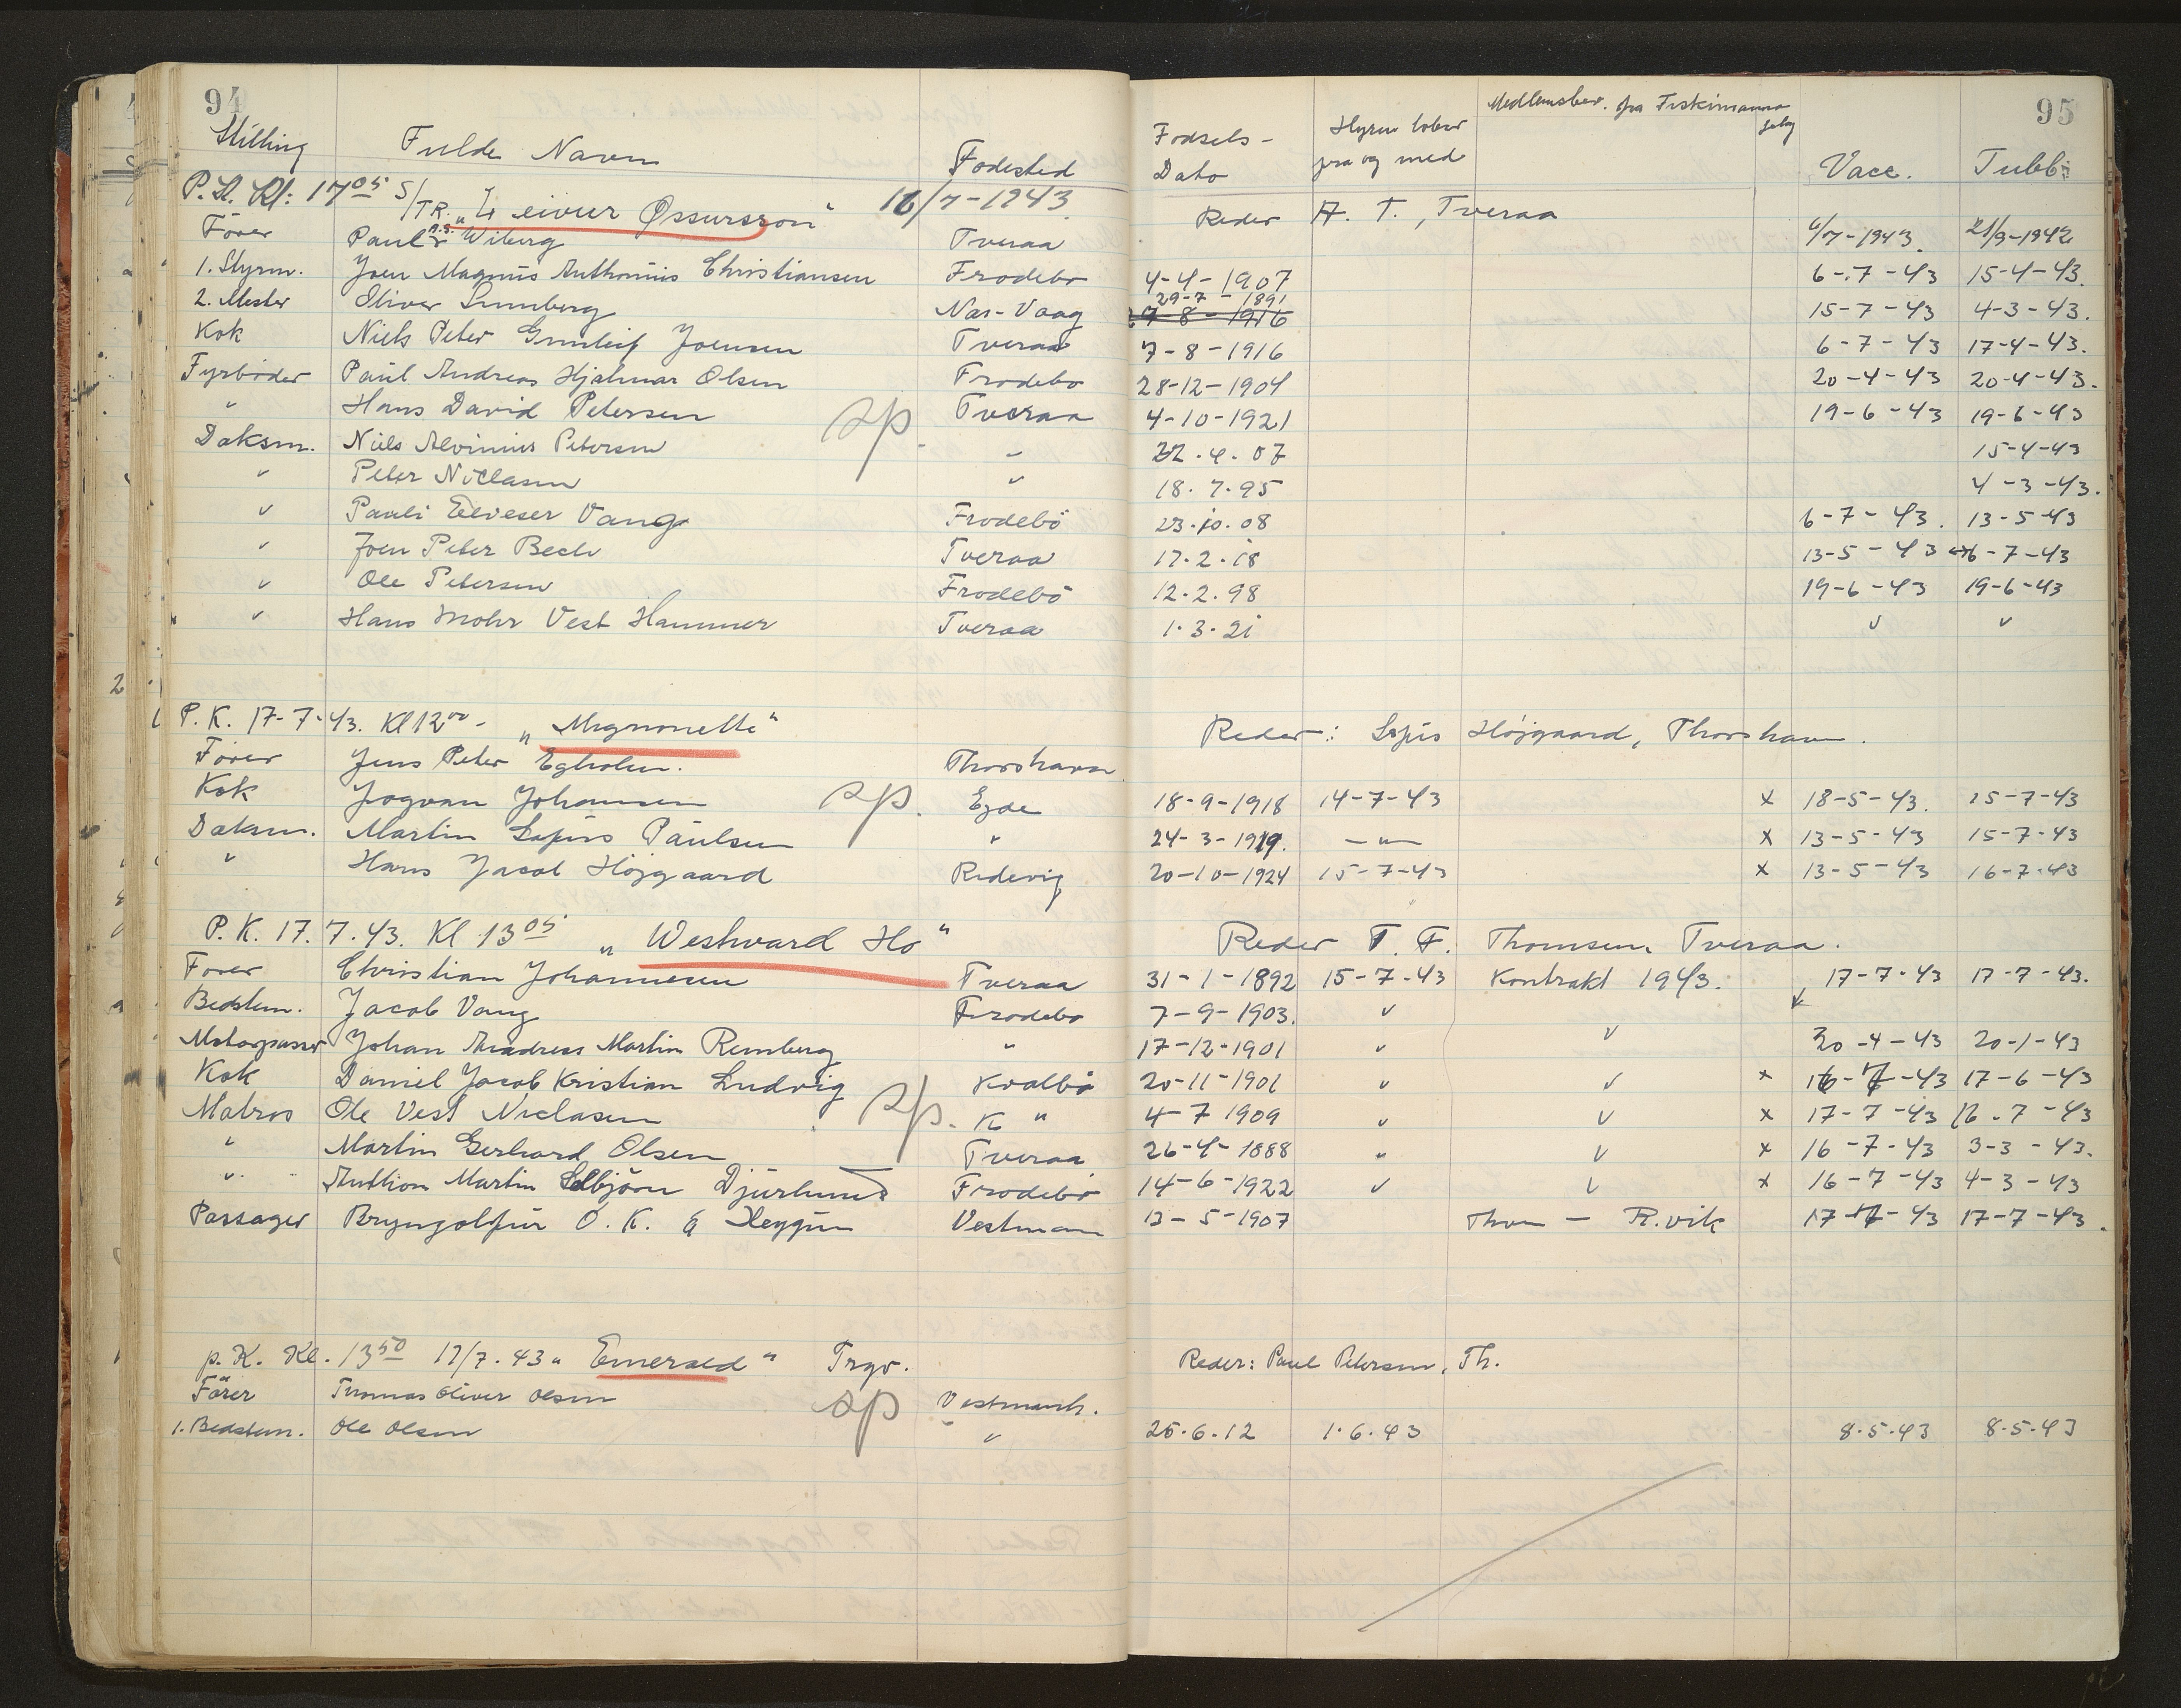 94
95
Stilling Fulde Navn Fødested Fødsels-Dato Hyren løber fra og med Medlemsbev. fra Fiskimannafelag Vacc. Tubb.
P. K. Kl: 17 05 S/TR. „Leivur Øssursson“ 16/7-1943. Reder A. T., Tveraa
Fører Paul Wiberg Tveraa 6/7-1943. 21/9-1942
1. Styrm. Joen Magnus Anthonius Christiansen Frodebø 4-4-1907 6-7-43 15-4-43.
2. Mester Oliver Lumberg Nas-Vaag 29-7-1891 15-7-43 4-3-43.
Kok Niels Peter Gunleif Joensen Tveraa 7-8-1916 6-7-43 17-4-43.
Fyrbøder Paul Andreas Hjalmar Olsen Frodebø 28-12-1904 20-4-43 20-4-43.
" Hans David Petersen Tveraa 4-10-1921 19-6-43 19-6-43
Daksm. Niels Alvinius Petersen " 22.4.07 15-4-43
" Peter Niclasen " 18.7.95 4-3-43.
" Pauli Vang Frodebö 23.10.08 6-7-43. 13-5-43
" Joen Peter Bech Tveraa 17.2.18 13-5-43 6-7-43
" Ole Petersen Frodebö 12.2.98 19-6-43 19-6-43
" Hans Mohr Vest Hammer Tveraa 1.3.21 " "
P. K. 17-7-43. Kl 12 00 - „Mignonette“ Reder: Højgaard, Thorshavn.
Fører Jens Peter Egholm. Thorshavn
Kok Jógvan Johansen Ejde 18-9-1918 14-7-43 x 18-5-43. 15-7-43
Daksm. Martin Paulsen " 24-3-1919. -"- x 13-5-43 15-7-43
" Hans Jacob Højgaard Ridevig 20-10-1924 15-7-43 x 13-5-43 16-7-43
P. K. 17.7.43. Kl 13 05 „Westward Ho“ Reder T. F. Thomsen, Tveraa.
Fører Christian Johannesen Tveraa 31-1-1892 15-7-43 Kontrakt 1943. 17-7-43 17-7-43.
Bedstem. Jacob Vang Frodebø 7-9-1903. "
Motorpasser Johan Andreas Martin Remberg " 17-12-1901 " " 20-4-43 20-1-43
Kok Daniel Jacob Kristian Ludvig Kvalbø 20-11-1901 " " x 16-7-43 17-6-43
Matros Ole Vest Niclasen K " 4-7 1909 " " x 17-7-43 16-7-43
" Martin Gerhard Olsen Tveraa 26-4-1888 " " x 16-7-43 3-3-43.
" Anthon Martin Djurhuus Frodebø 14-6-1922 " " x 16-7-43 4-3-43
Passager Bryngolfur O. K. á Heygum Vestman 13-5-1907 Thom - R.vik 17-7-43 17-7-43.
p. K. Kl. 13 50 17/7.43 „Emerald“ Trgv. Reder: Paul Petersen, Th.
Fører Thomas Oliver Olsen Vestmanh.
1. Bedstem. Ole Olsen " 25.6.12 1.6.43 8.5.43 8.5.43